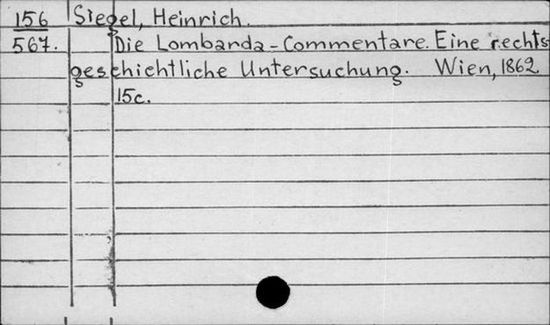 156 Siegel, Heinrich.
567. Die Lombarda-Commentare. Eine rechts
geschichtliche Untersuchung. Wien, 1862.
15c.